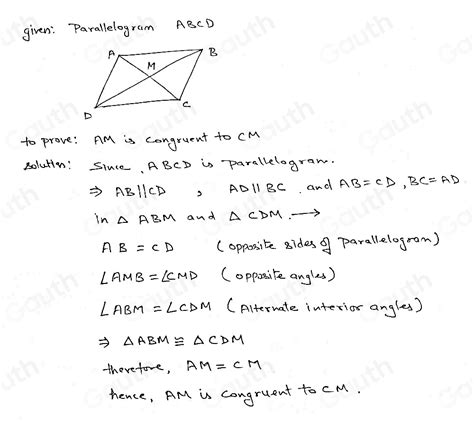 given: Parallelogram ABCD
A
B
M
D
C
to prove: AM is congruent to CM
solution: Since, ABCD is parallelogram.
⇒ AB||CD , AD||BC and AB=CD, BC=AD
in △ ABM and △ CDM. →
AB = CD (opposite sides of parallelogram)
∠AMB = ∠CMD (opposite angles)
∠ABM = ∠CDM (Alternate interior angles)
⇒ △ABM ≅ △CDM
therefore, AM = CM
hence, AM is congruent to CM.
Gauth